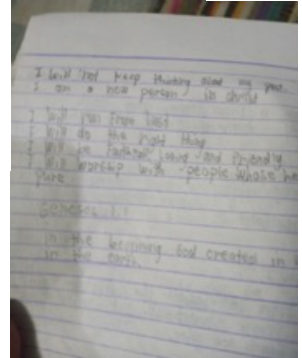 I will not keep thinking about my past.
I am a new person in christ
I will run from lust
I will do the right thing
I will be faithful, loving and friendly
I will worship with people whose he
pure
Genesis 1:1
In the beginning God created in
in the earth.